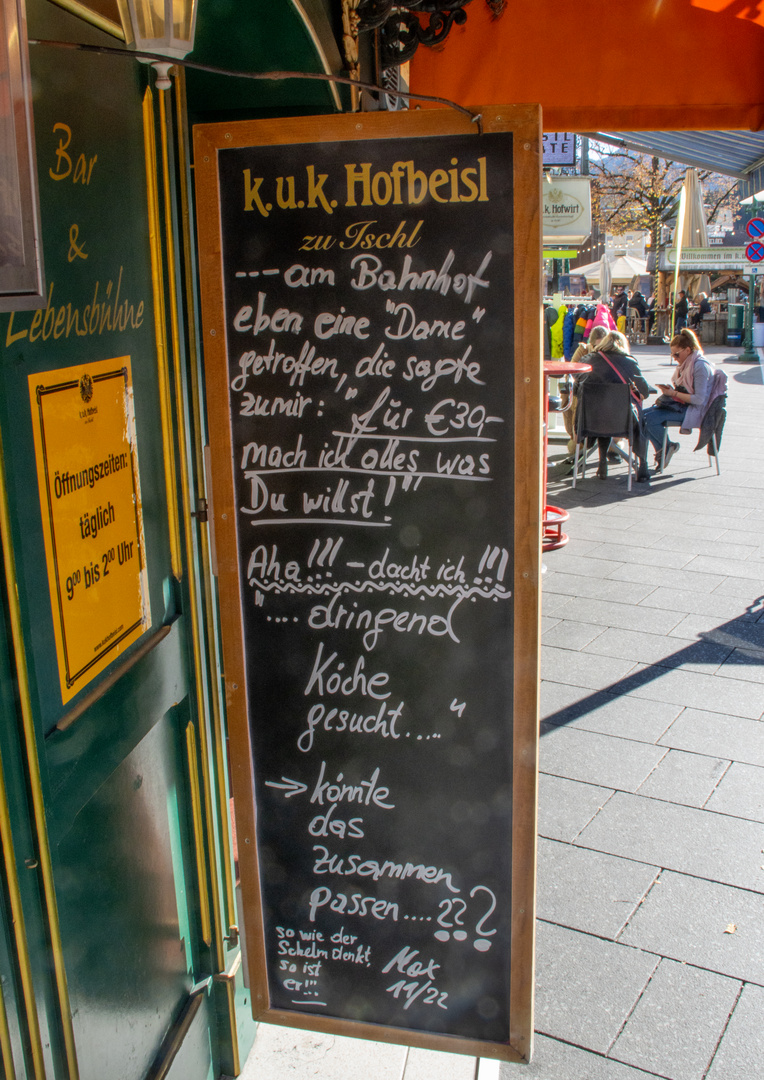 Bar
&
Lebensbühne
k.u.k. Hofbeisl
zu Ischl
Öffnungszeiten:
täglich
9⁰⁰ bis 2⁰⁰ Uhr
k.u.k. Hofbeisl
zu Ischl
---am Bahnhof
eben eine "Dame"
getroffen, die sagte
zu mir: "für €30,-
mach ich alles was
Du willst!"
Aha!!! - dacht ich!!!
".... dringend
Köche
gesucht...."
→ könnte
das
zusammen
passen....???
so wie der
Schelm denkt,
so ist
er!"
Max
11/22
k. Hofwirt
Willkommen im k.u